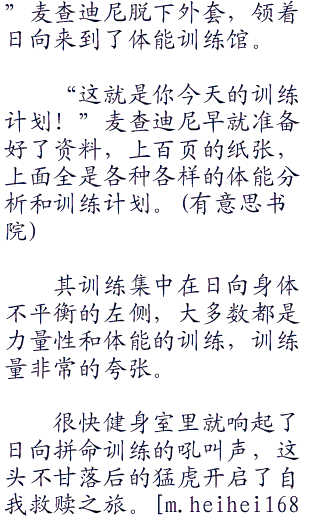 ”麦查迪尼脱下外套，领着
日向来到了体能训练馆。
“这就是你今天的训练
计划！”麦查迪尼早就准备
好了资料，上百页的纸张，
上面全是各种各样的体能分
析和训练计划。(有意思书
院)
其训练集中在日向身体
不平衡的左侧，大多数都是
力量性和体能的训练，训练
量非常的夸张。
很快健身室里就响起了
日向拼命训练的吼叫声，这
头不甘落后的猛虎开启了自
我救赎之旅。[m.heihei168